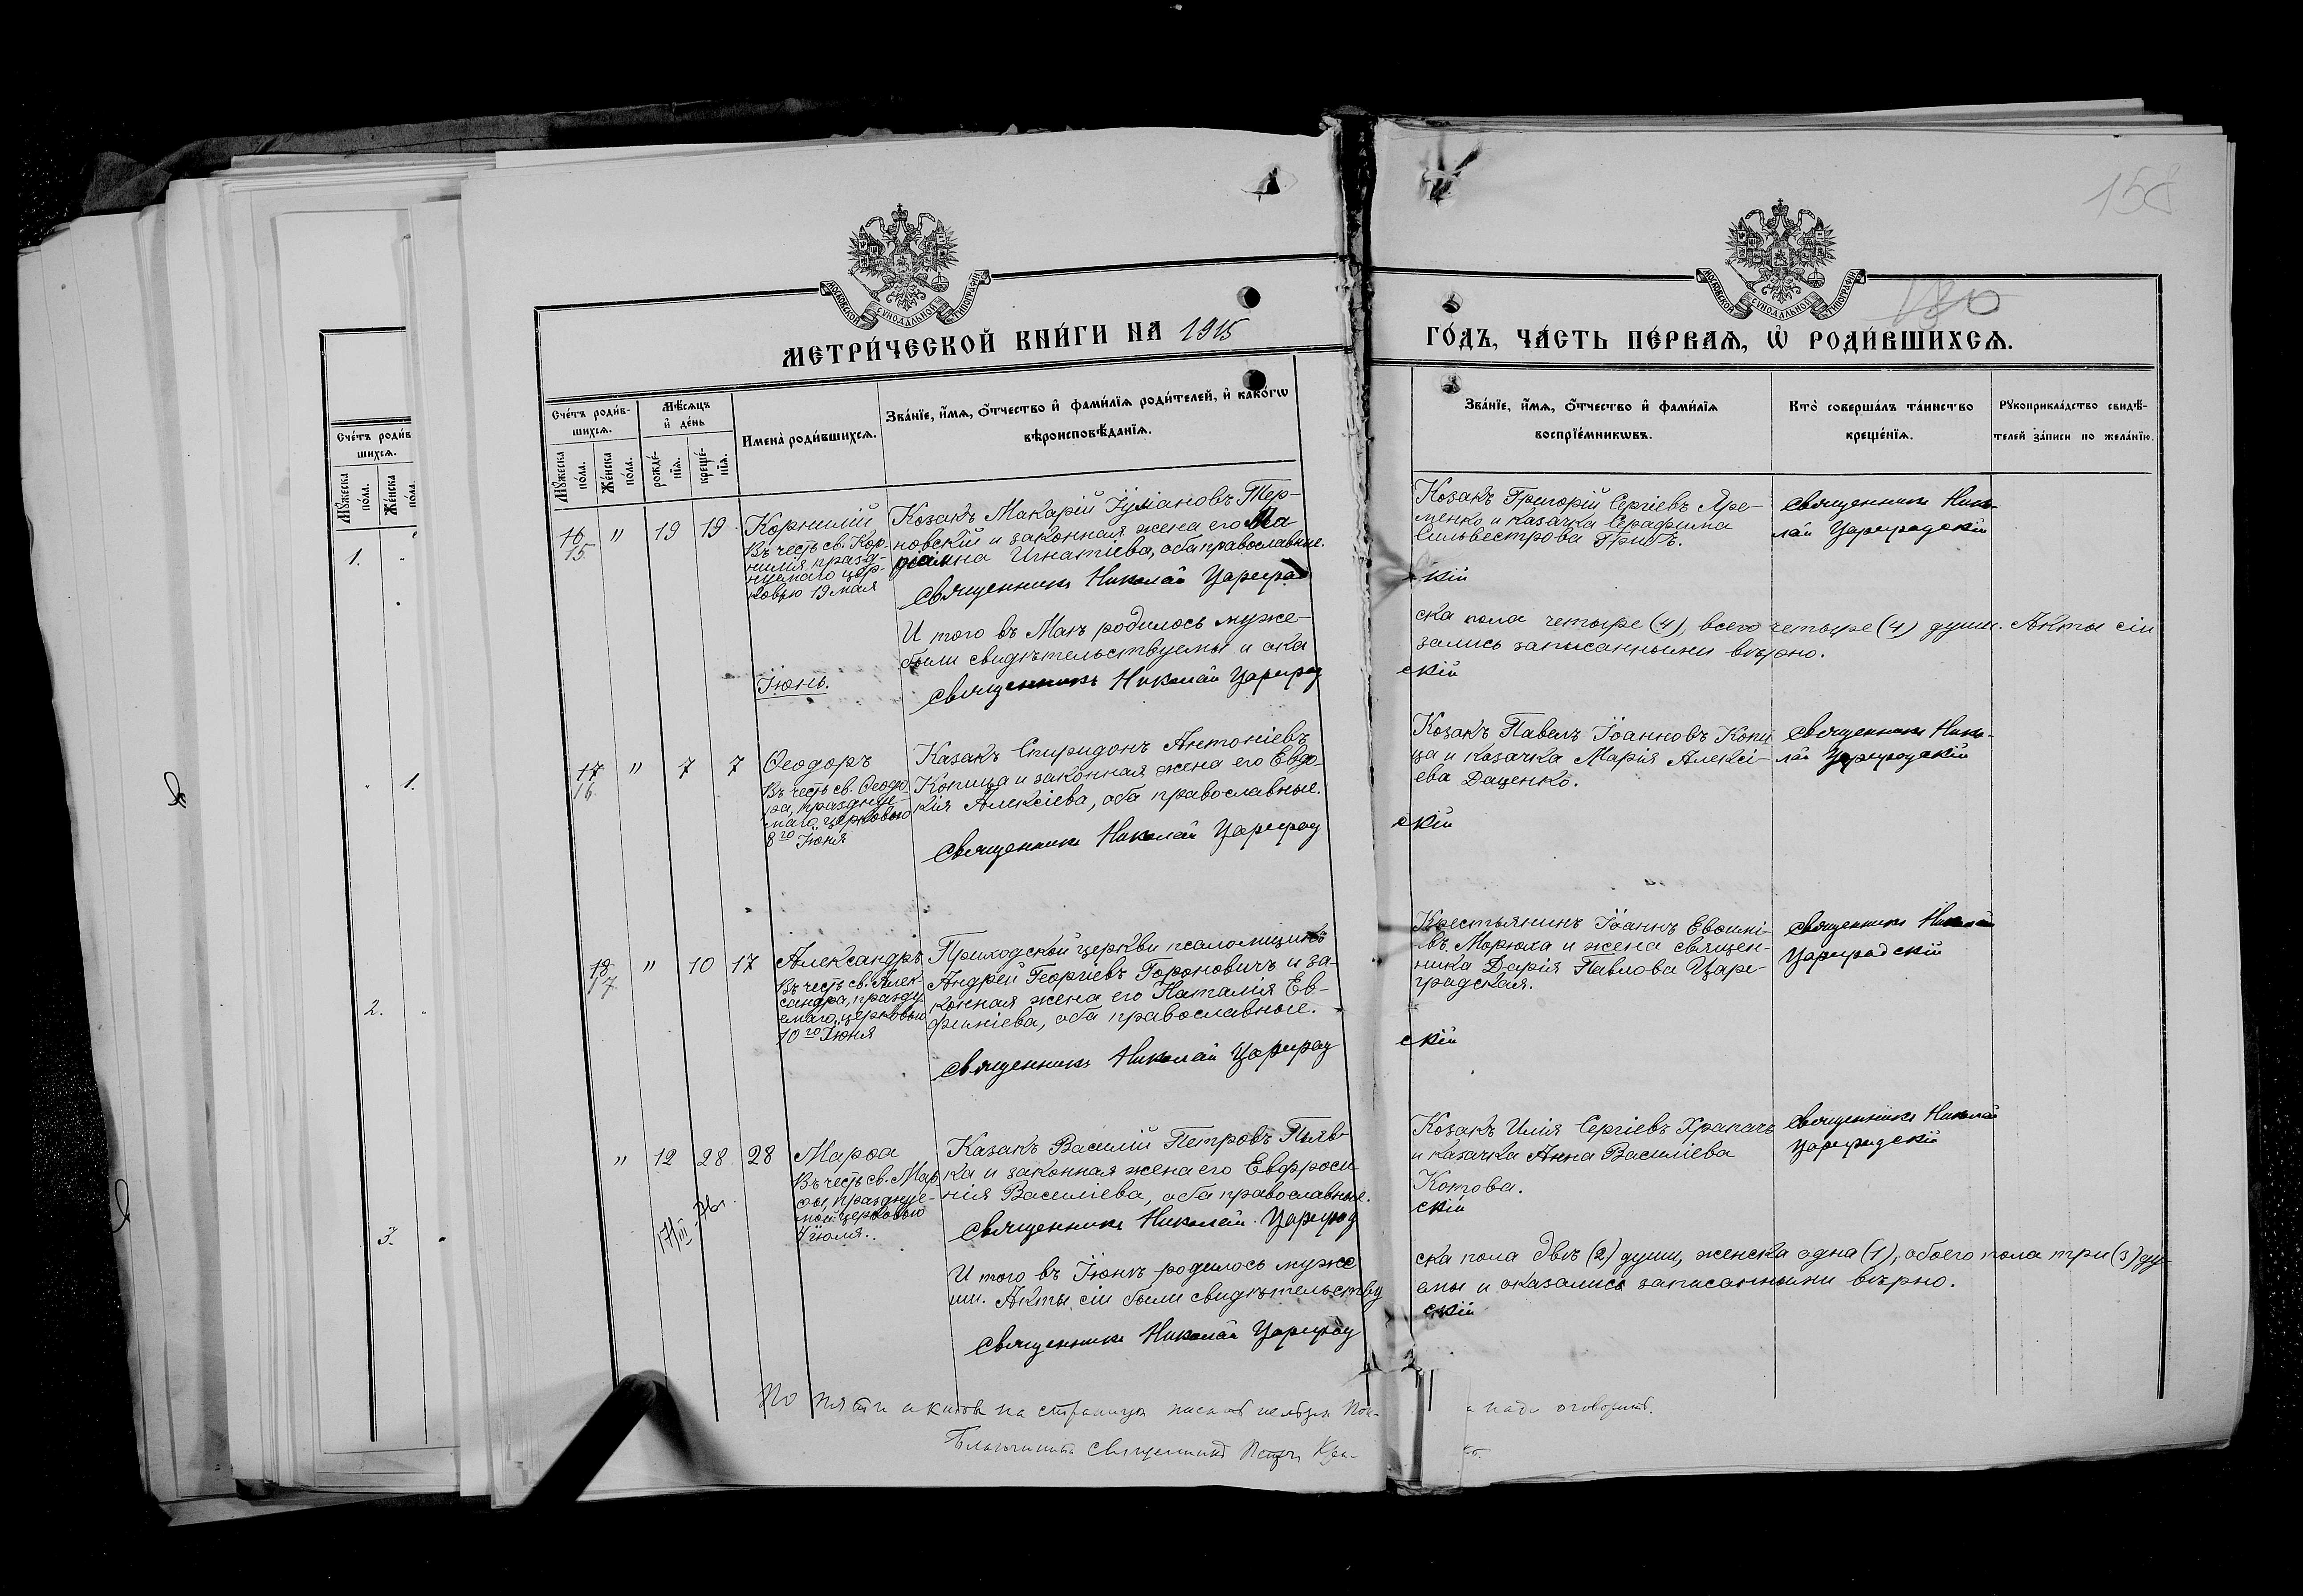 158
МОСКОВСКОЙ СУНОДАЛЬНОЙ ТИПОГРАФIИ
МОСКОВСКОЙ СУНОДАЛЬНОЙ ТИПОГРАФIИ
МЕТРИ́ЧЕСКОЙ КНИ́ГИ НА 1915
ГО́ДЪ, ЧА́СТЬ ПЕ́РВАѦ, Ѡ҆ РОДИ́ВШИХСѦ.
Сче́тъ роди́в-
шихсѧ.
Мꙋ́жеска
по́ла.
Же́нска
по́ла.
Сче́тъ роди́в-
шихсѧ.
Мꙋ́жеска
по́ла.
Же́нска
по́ла.
Мѣ́сѧцъ
и҆ де́нь
рожде́-
нїѧ.
креще́-
нїѧ.
Имена̀ роди́вшихсѧ.
Зва́нїе, и҆́мѧ, ѻ҆́тчество и҆ фами́лїѧ роди́телей, и҆ како́гѡ
вѣроисповѣ́данїѧ.
Зва́нїе, и҆́мѧ, ѻ҆́тчество и҆ фами́лїѧ
воспрїе́мникѡвъ.
Кто̀ соверша́лъ та́инство
креще́нїѧ.
Рꙋкоприкла́дство свидѣ́-
телей за́писи по жела́нїю.
1.
1.
2.
3.
16
15.
"
19
19
Корнилій
Въ честь св. Кор-
нилія, празд-
нуемаго цер-
ковью 19 мая
Козакъ Макарій Іуліановъ Тер-
новскій и законная жена его Ма
ріанна Игнатіева, оба православные.
Священникъ Николай Цареград
скій
Козакъ Григорій Сергіевъ Яре-
менко и казачка Серафима
Сильвестрова Грибъ.
Священникъ Нико-
лай Цареградскій
И того въ Маѣ родилось муже-
ска пола четыре (4), всего четыре (4) души. Акты сіи
были свидѣтельствуемы и ока
зались записанными вѣрно.
Священникъ Николай Цареград
скій
Іюнь.
17
16.
"
7
7
Ѳеодоръ
Въ честь св. Ѳеодо
ра, праздну-
маго церковью
8го Іюня
Казакъ Спиридонъ Антоніевъ
Копица и законная жена его Евдо-
кія Алексіева, оба православные.
Священникъ Николай Цареград
скій
Козакъ Павелъ Іоанновъ Копи
ца и казачка Марія Алексі-
ева Даценко.
Священникъ Нико-
лай Цареградскій
18
17.
"
10
17
Александръ
Въ честь св. Алек-
сандра, праздну
емаго церковью
10го Іюня
Приходской церкви псаломщикъ
Андрей Георгіевъ Гороновичъ и за-
конная жена его Наталія Ев-
фиміева, оба православные.
Священникъ Николай Цареград
скій
Крестьянинъ Іоаннъ Евѳимі-
въ Морюха и жена священ-
ника Дарія Павлова Царе-
градская.
Священникъ Николай
Цареградскій
"
12
28
28
Марѳа
Въ честь св. Мар
ѳы, праздну-
мой церковью
4 іюля.
Казакъ Василій Петровъ Пьяв-
ка и законная жена его Евфроси
нія Василіева, оба православные.
Священникъ Николай Цареград
скій
Козакъ Илія Сергіевъ Храпачъ
и казачка Анна Василіева
Котова.
Священникъ Николай
Цареградскій
И того въ Іюнѣ родилось муже
ска пола двѣ (2) души, женска одна (1), обоего пола три (3) ду-
ши. Акты сіи были свидѣтельству
емы и оказались записанными вѣрно.
Священникъ Николай Цареград
скій
По пяти актов на странице писать нельзя
надо оговорить.
Благочинный Священникъ Петръ